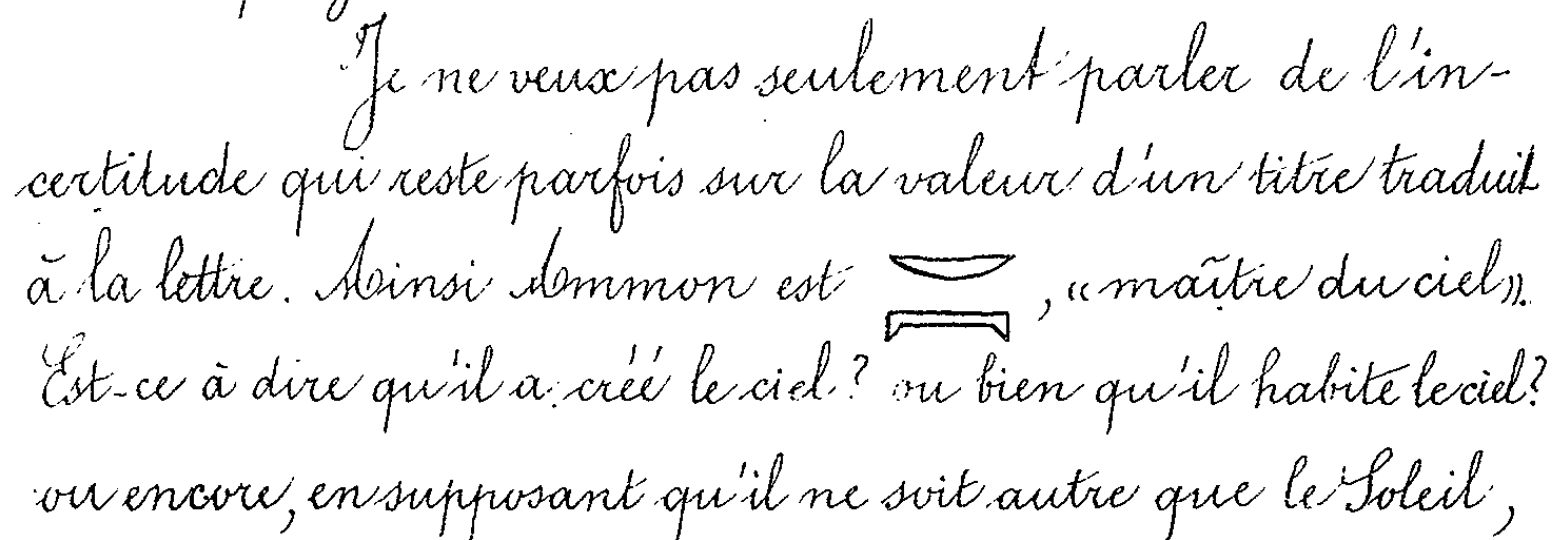 Je ne veux pas seulement parler de l'in-
certitude qui reste parfois sur la valeur d'un titre traduit
à la lettre. Ainsi Ammon est 𓎟𓇯, « maître du ciel ».
Est-ce à dire qu'il a créé le ciel ? ou bien qu'il habite le ciel ?
ou encore, en supposant qu'il ne soit autre que le Soleil,